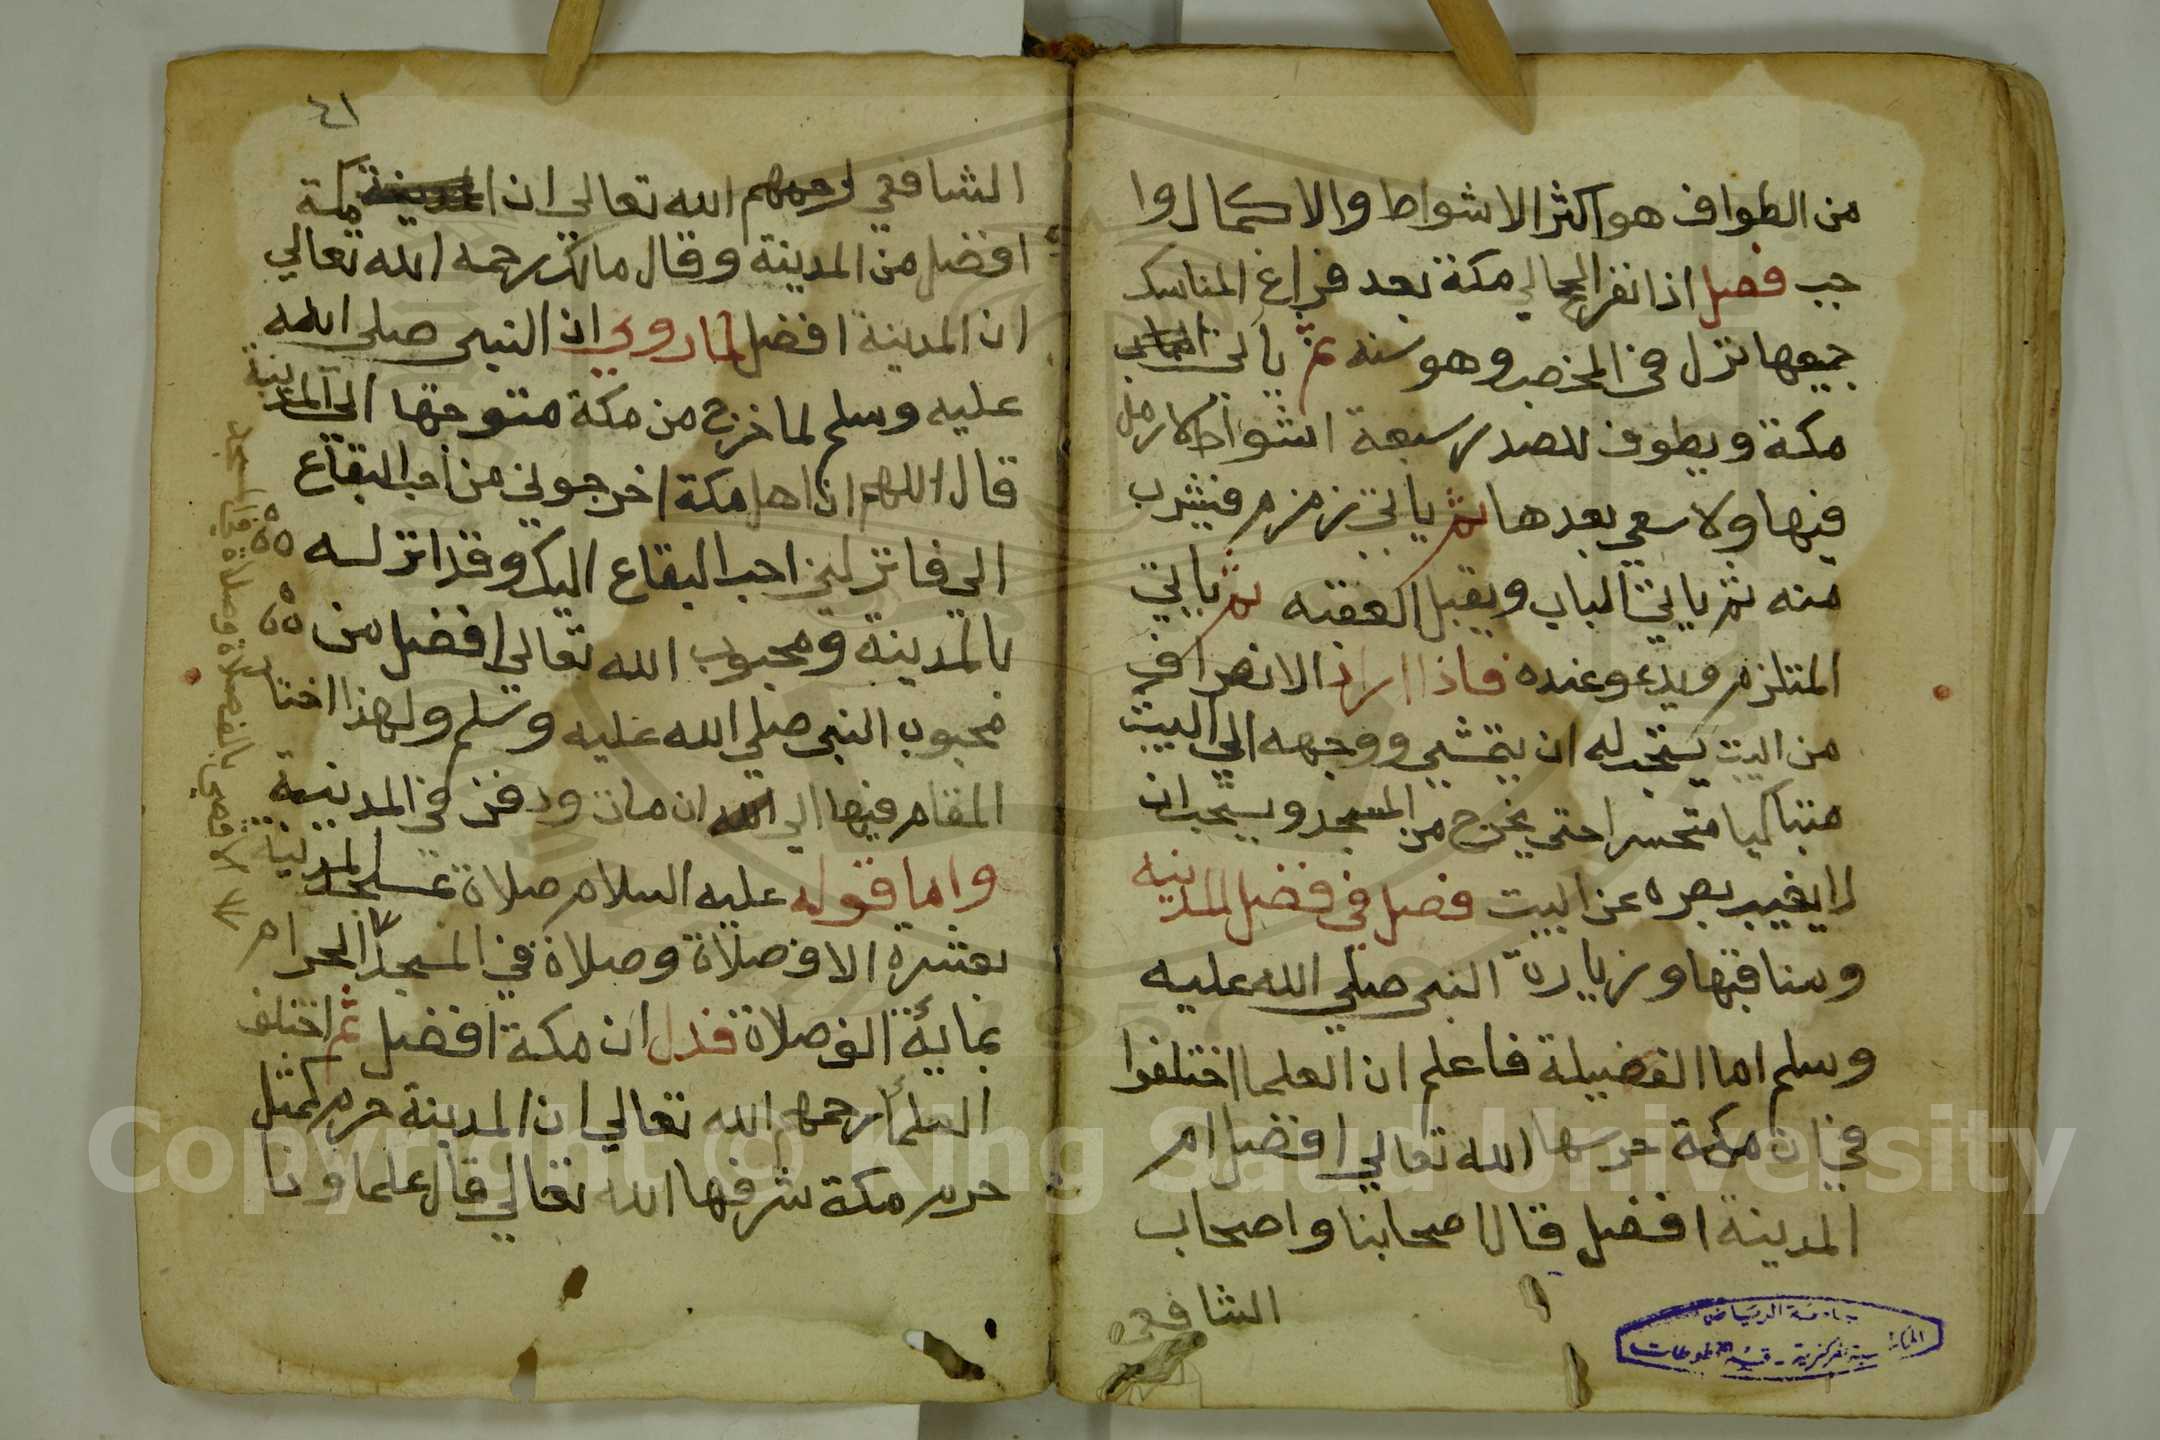 من الطواف هو اكثر الاشواط والاكمال وا
جب فصل اذا نفر الحجا لي مكة بعد فراغ المناسك
جميعها نزل في المخصب وهو سنه ثم ياتي
مكة ويطوف للصدر سبعة اشواط لا رمل
فيها ولا سعي بعدها ثم ياتي زمزم فيشرب
منه ثم ياتي الباب ويقبل العقبه ثم ياتي
الملتزم ويدعو عنده فاذا اراد الانصراف
من البيت يستحب له ان يتمشي ووجهه الي البيت
متباكيا متحسرا حتى يخرج من المسجد ويستحب ان
لا يغيب بصره عن البيت فصل في فضل المدينه
ومناقبها وزيارة النبي صلي الله عليه
وسلم اما الفضيلة فاعلم ان العلما اختلفوا
في ان مكة حرسها الله تعالي افضل ام
المدينة افضل قال اصحابنا واصحاب
الشافعي
جامعة الرياض
المكتبة المركزية - قسم المخطوطات
٤١
الشافعي رحمهم الله تعالي ان المدينة مكة
افضل من المدينة وقال مالك رحمه الله تعالي
ان المدينة افضل لما روي ان النبي صلى الله
عليه وسلم لما خرج من مكة متوجها الى المدينة
قال اللهم ان اهل مكة اخرجوني من احب البقاع
الي فانزلني احب البقاع اليك وقد انزله
بالمدينة ومحبوب الله تعالي افضل من
محبوب النبي صلي الله عليه وسلم ولهذا اختار
المقام فيها الي الله ان مات ودفن في المدينة
واما قوله عليه السلام صلاة بمسجد المدينة
بعشرة الاف صلاة وصلاة في المسجد الحرام
بماية الف صلاة فدل ان مكة افضل ثم اختلف
العلما رحمهم الله تعالي ان المدينة حرم كمثل
حرم مكة شرفها الله تعالي قال علماونا
الاقصي بالف صلاة وصلاة في المسجد
Copyright © King Saud University